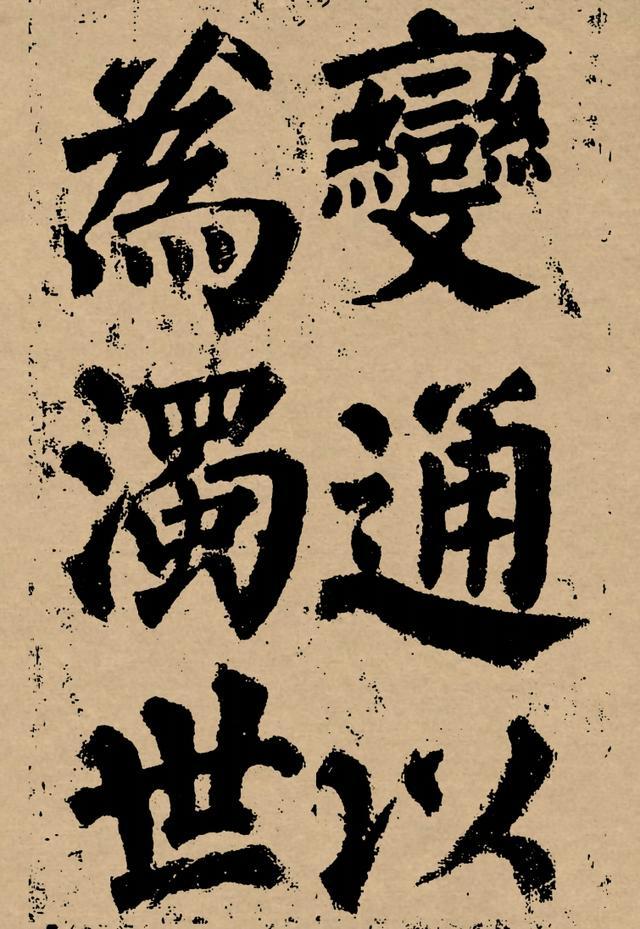 變通以
為濁世